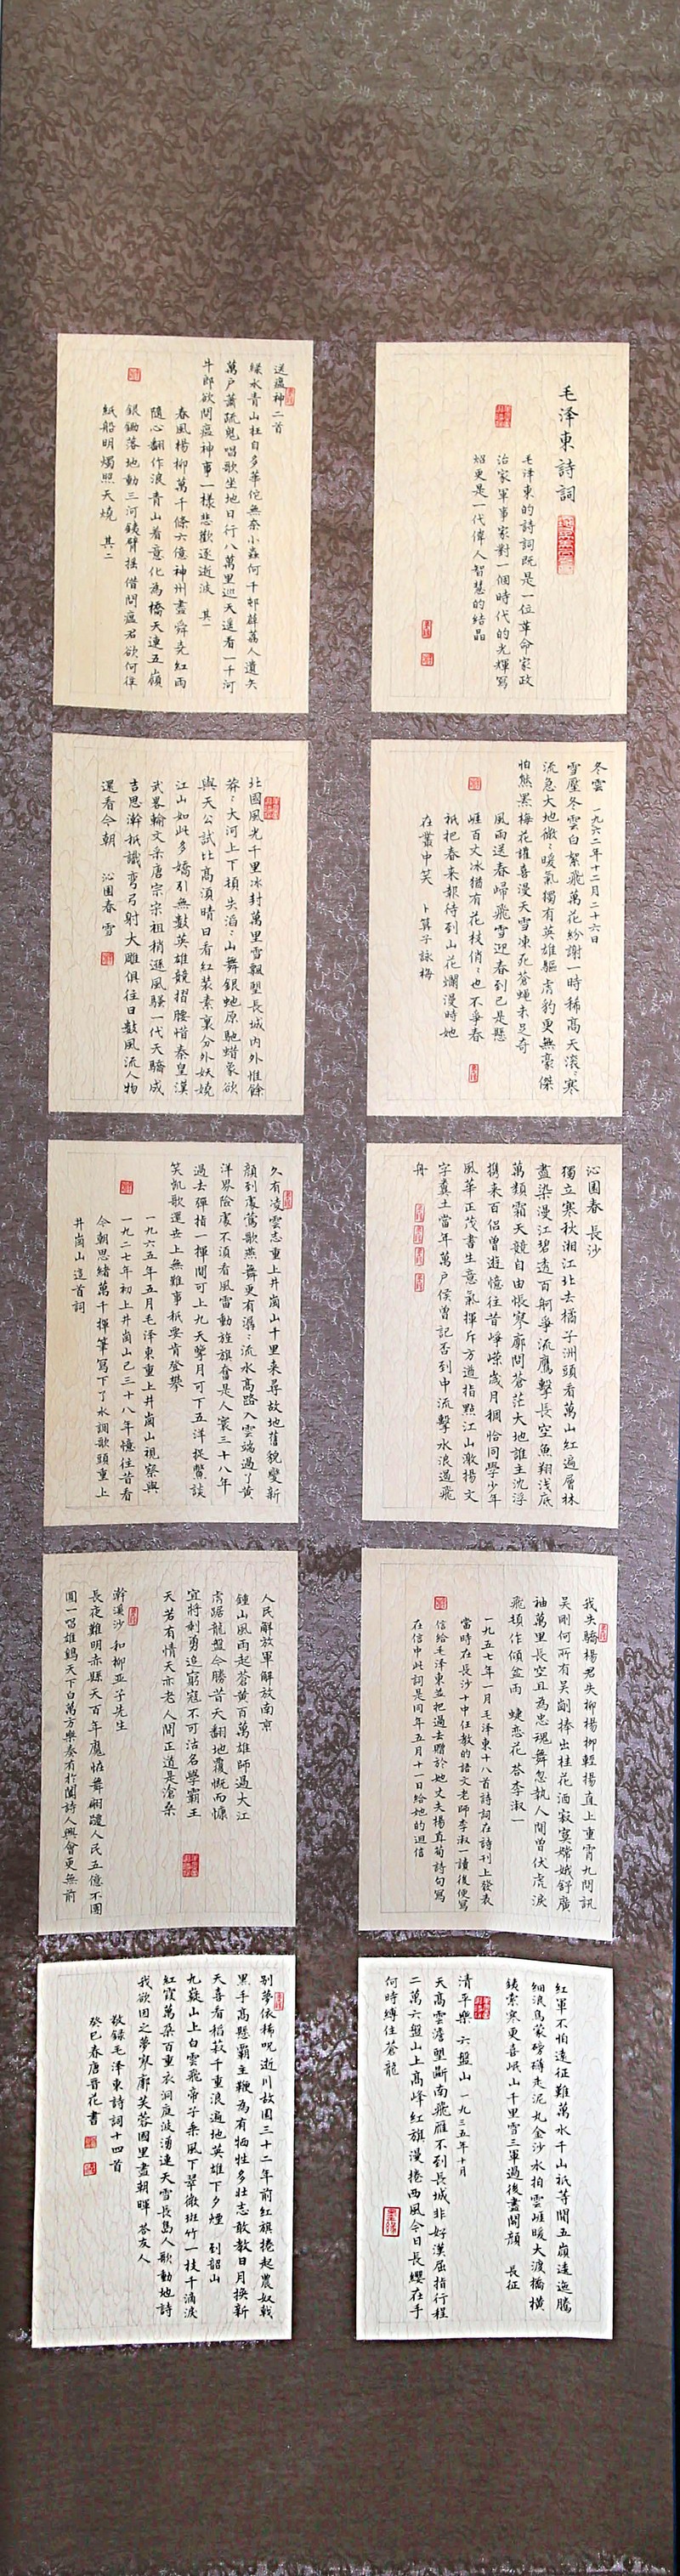 毛泽東詩詞
毛泽東的詩詞既是一位革命家政
治家軍事家對一個時代的光輝寫
照更是一代偉人智慧的結晶
冬雲 一九六二年十二月二十六日
雪壓冬雲白絮飛萬花紛謝一時稀高天滾〻寒
流急大地微〻暖氣獨有英雄驅虎豹更無豪傑
怕熊羆梅花歡喜漫天雪凍死蒼蠅未足奇
風雨送春歸飛雪迎春到已是懸
崖百丈冰猶有花枝俏〻也不爭春
祇把春来報待到山花爛漫時她
在叢中笑 卜算子詠梅
沁園春 長沙
獨立寒秋湘江北去橘子洲頭看萬山紅遍層林
盡染漫江碧透百舸爭流鷹擊長空魚翔浅底
萬類霜天競自由悵寥廓問蒼茫大地誰主沈浮
携来百侣曾遊憶往昔崢嶸歲月稠恰同學少年
風華正茂書生意氣揮斥方遒指點江山激揚文
字糞土當年萬户侯曾記否到中流擊水浪遏飛
舟
我失驕楊君失柳楊柳輕揚直上重霄九問訊
吴剛何所有吴剛捧出桂花酒寂寞嫦娥舒廣
袖萬里長空且為忠魂舞忽執人間曾伏虎淚
飛頓作傾盆雨 蝶恋花 荅李淑一
一九五七年一月毛泽東十八首詩詞在詩刊上發表
當時在長沙十中任教的語文老師李淑一讀後便寫
信給毛泽東並把過去贈於她丈夫楊直荀詩句寫
在信中此詞是同年五月十一日給她的迴信
紅軍不怕遠征難萬水千山祇等閒五嶺逶迤騰
細浪烏蒙磅礴走泥丸金沙水拍雲崖暖大渡橋横
鐵索寒更喜岷山千里雪三軍過後盡開顔 長征
清平樂 六盤山 一九三五年十月
天高雲澹望斷南飛雁不到長城非好漢屈指行程
二萬六盤山上高峰紅旗漫捲西風今日長纓在手
何時縛住蒼龍
送瘟神二首
緑水青山枉自多華佗無奈小蟲何千邨薜荔人遺矢
萬户蕭疏鬼唱歌坐地日行八萬里巡天遥看一千河
牛郎欲問瘟神事一樣悲歡逐逝波 其一
春風楊柳萬千條六億神州盡舜尭紅雨
隨心翻作浪青山着意化為橋天連五嶺
銀鋤落地動三河鐵臂摇借問瘟君欲何往
紙船明燭照天燒 其二
北國風光千里冰封萬里雪飄望長城内外惟餘
莽〻大河上下頓失滔〻山舞銀虵原馳蜡象欲
與天公試比高湏晴日看紅装素裹分外妖嬈
江山如此多嬌引無數英雄競摺腰惜秦皇漢
武畧輸文采唐宗宋祖稍遜風騷一代天驕成
吉思漧祇識彎弓射大雕俱往日數風流人物
還看今朝 沁園春 雪
久有凌雲志重上井崗山千里来尋故地舊貌變新
顔到處鶯歌燕舞更有潺〻流水高路入雲端過了黄
洋界險處不湏看風雷動旌旗奮是人寰三十八年
過去彈指一揮間可上九天擥月可下五洋捉鱉談
笑凯歌還世上無難事祇要肯登攀
一九六五年五月毛泽東重上井崗山視察與
一九二七年初上井崗山已三十八年憶往昔看
今朝思緒萬千揮筆寫下了水調歌頭重上
井崗山這首詞
人民解放軍解放南京
鍾山風雨起蒼黄百萬雄師過大江
虎踞龍盤今勝昔天翻地覆慨而慷
宜將剩勇追窮寇不可沽名學霸王
天若有情天亦老人間正道是滄桑
澣溪沙 和柳亚子先生
長夜難明赤縣天百年魔怪舞翩躚人民五億不團
圓一唱雄鷄天下白萬方樂奏有於闐詩人興會更無前
别夢依稀呪逝川故園三十二年前紅旗捲起農奴戟
黑手高懸霸主鞭為有牺牲多壮志敢教日月换新
天喜看稻菽千重浪遍地英雄下夕煙 到韶山
九嶷山上白雲飛帝子乘風下翠微斑竹一枝千滴淚
紅霞萬朶百重衣洞庭波湧連天雪長島人歌動地詩
我欲因之夢寥廓芙蓉國里盡朝暉 荅友人
敬録毛泽東詩詞十四首
癸巳春唐晋花書